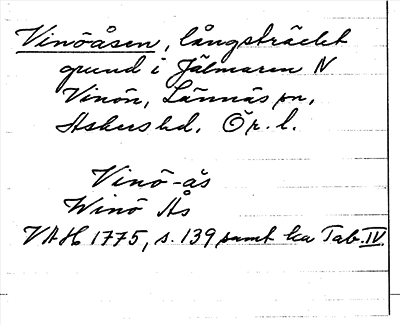 Vinöåsen, långsträckt
grund i Hjälmaren N
Vinön, Lännäs sn,
Askers hd. Ör. l.
Vinö-ås
Winö Ås
VAH 1775, s. 139 samt ka Tab. IV.